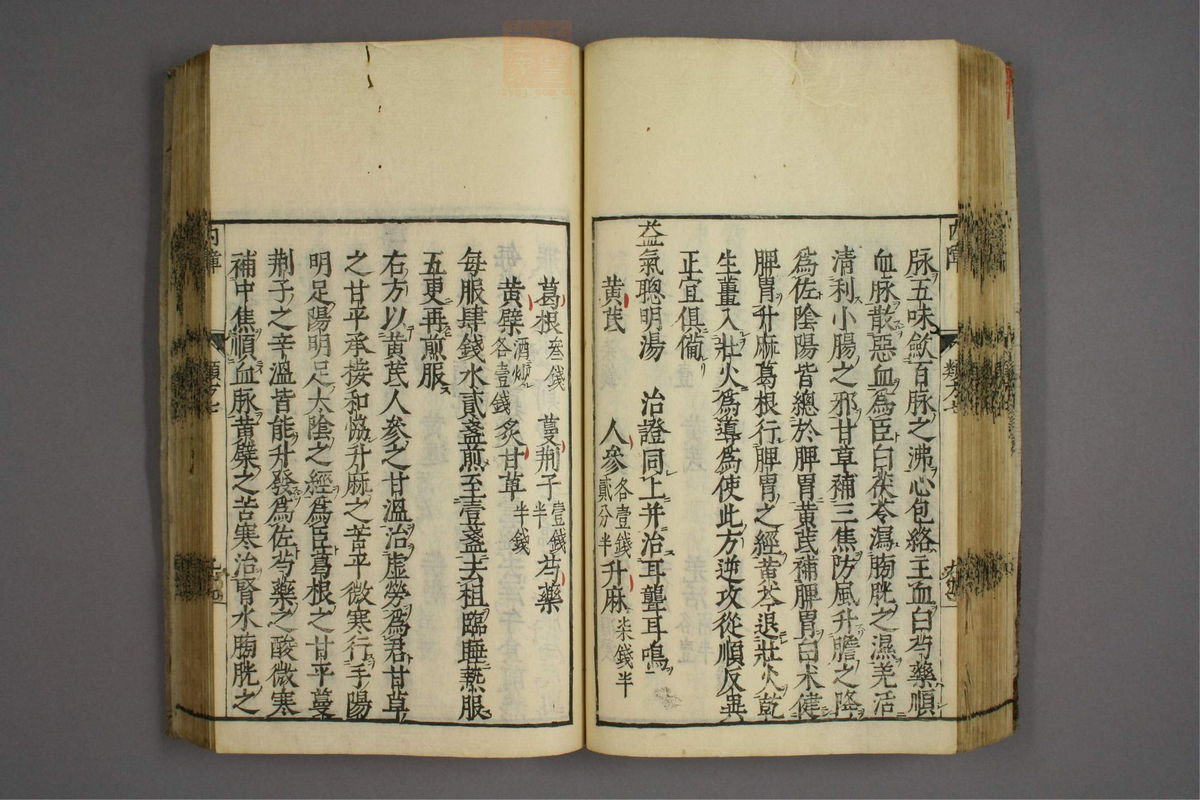 脉五味斂百脉之沸心包絡主血白芍藥順
血脉散惡血為臣白茯苓瀉胸胱之濕羌活
清利小腸之邪甘草補三焦防風升膽之降
為佐陰陽皆總於脾胃黃芪補脾胃白术健
脾胃升麻葛根行脾胃之經黃芩退壯火乾
生薑入壯火為導為使此方逆攻從順反異
正宜俱備
益氣聰明湯 治證同上并治耳聾耳鳴
黃芪 人參各壹錢貳分半 升麻柒錢半
葛根叁錢 蔓荆子壹錢半 芍藥
黃檗酒炒各壹錢 炙甘草半錢
每服肆錢水貳盞煎至壹盞去柤臨睡熱服
五更再煎服
右方以黃芪人參之甘溫治虛勞為君甘草
之甘平承接和恊升麻之苦平微寒行手陽
明足陽明足太陰之經為臣葛根之甘平蔓
荆子之辛溫皆能升發為佐芍藥之酸微寒
補中焦順血脉黃檗之苦寒治腎水胸胱之